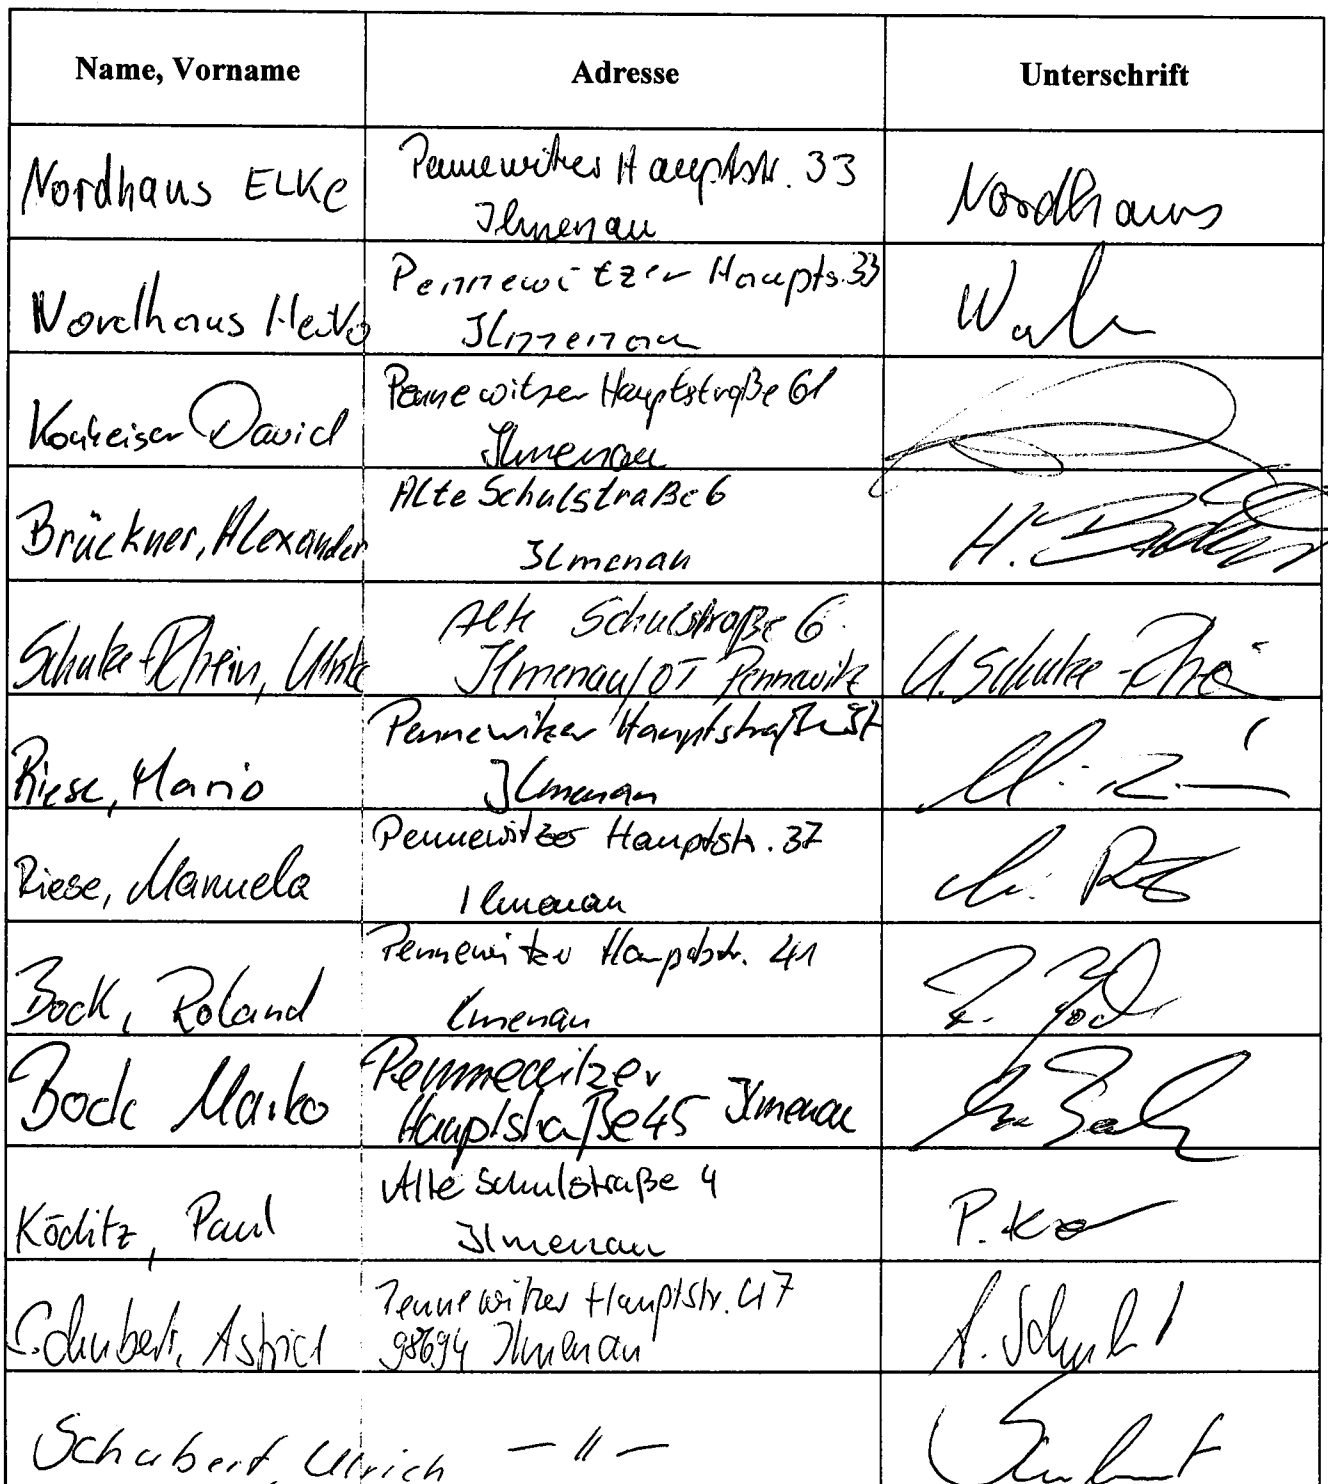 Name, Vorname Adresse Unterschrift
Nordhaus ELKe Pennewitzer Hauptstr. 33 Nordhaus
Ilmenau
Nordhaus Heiko Pennewitzer Haupts. 33
Ilmenau
David Pennewitzer Hauptstraße 61
Ilmenau
Brückner, Alexander Alte Schulstraße 6
Ilmenau
Schulze-Rhein, Alte Schulstraße 6
Ilmenau/OT Pennewitz U. Schulze-
Riese, Mario Pennewitzer Hauptstraße
Ilmenau
Riese, Manuela Pennewitzer Hauptstr. 37
Ilmenau
Bock, Roland Pennewitzer Hauptstr. 41 R. Bock
Ilmenau
Bock Maiko Pennewitzer
Hauptstraße 45 Ilmenau
Köditz, Paul Alte Schulstraße 4 P. Kö
Ilmenau
Schubert, Astrid Pennewitzer Hauptstr. 47 A. Schubert
98694 Ilmenau
Schubert, Ulrich — " — Schubert